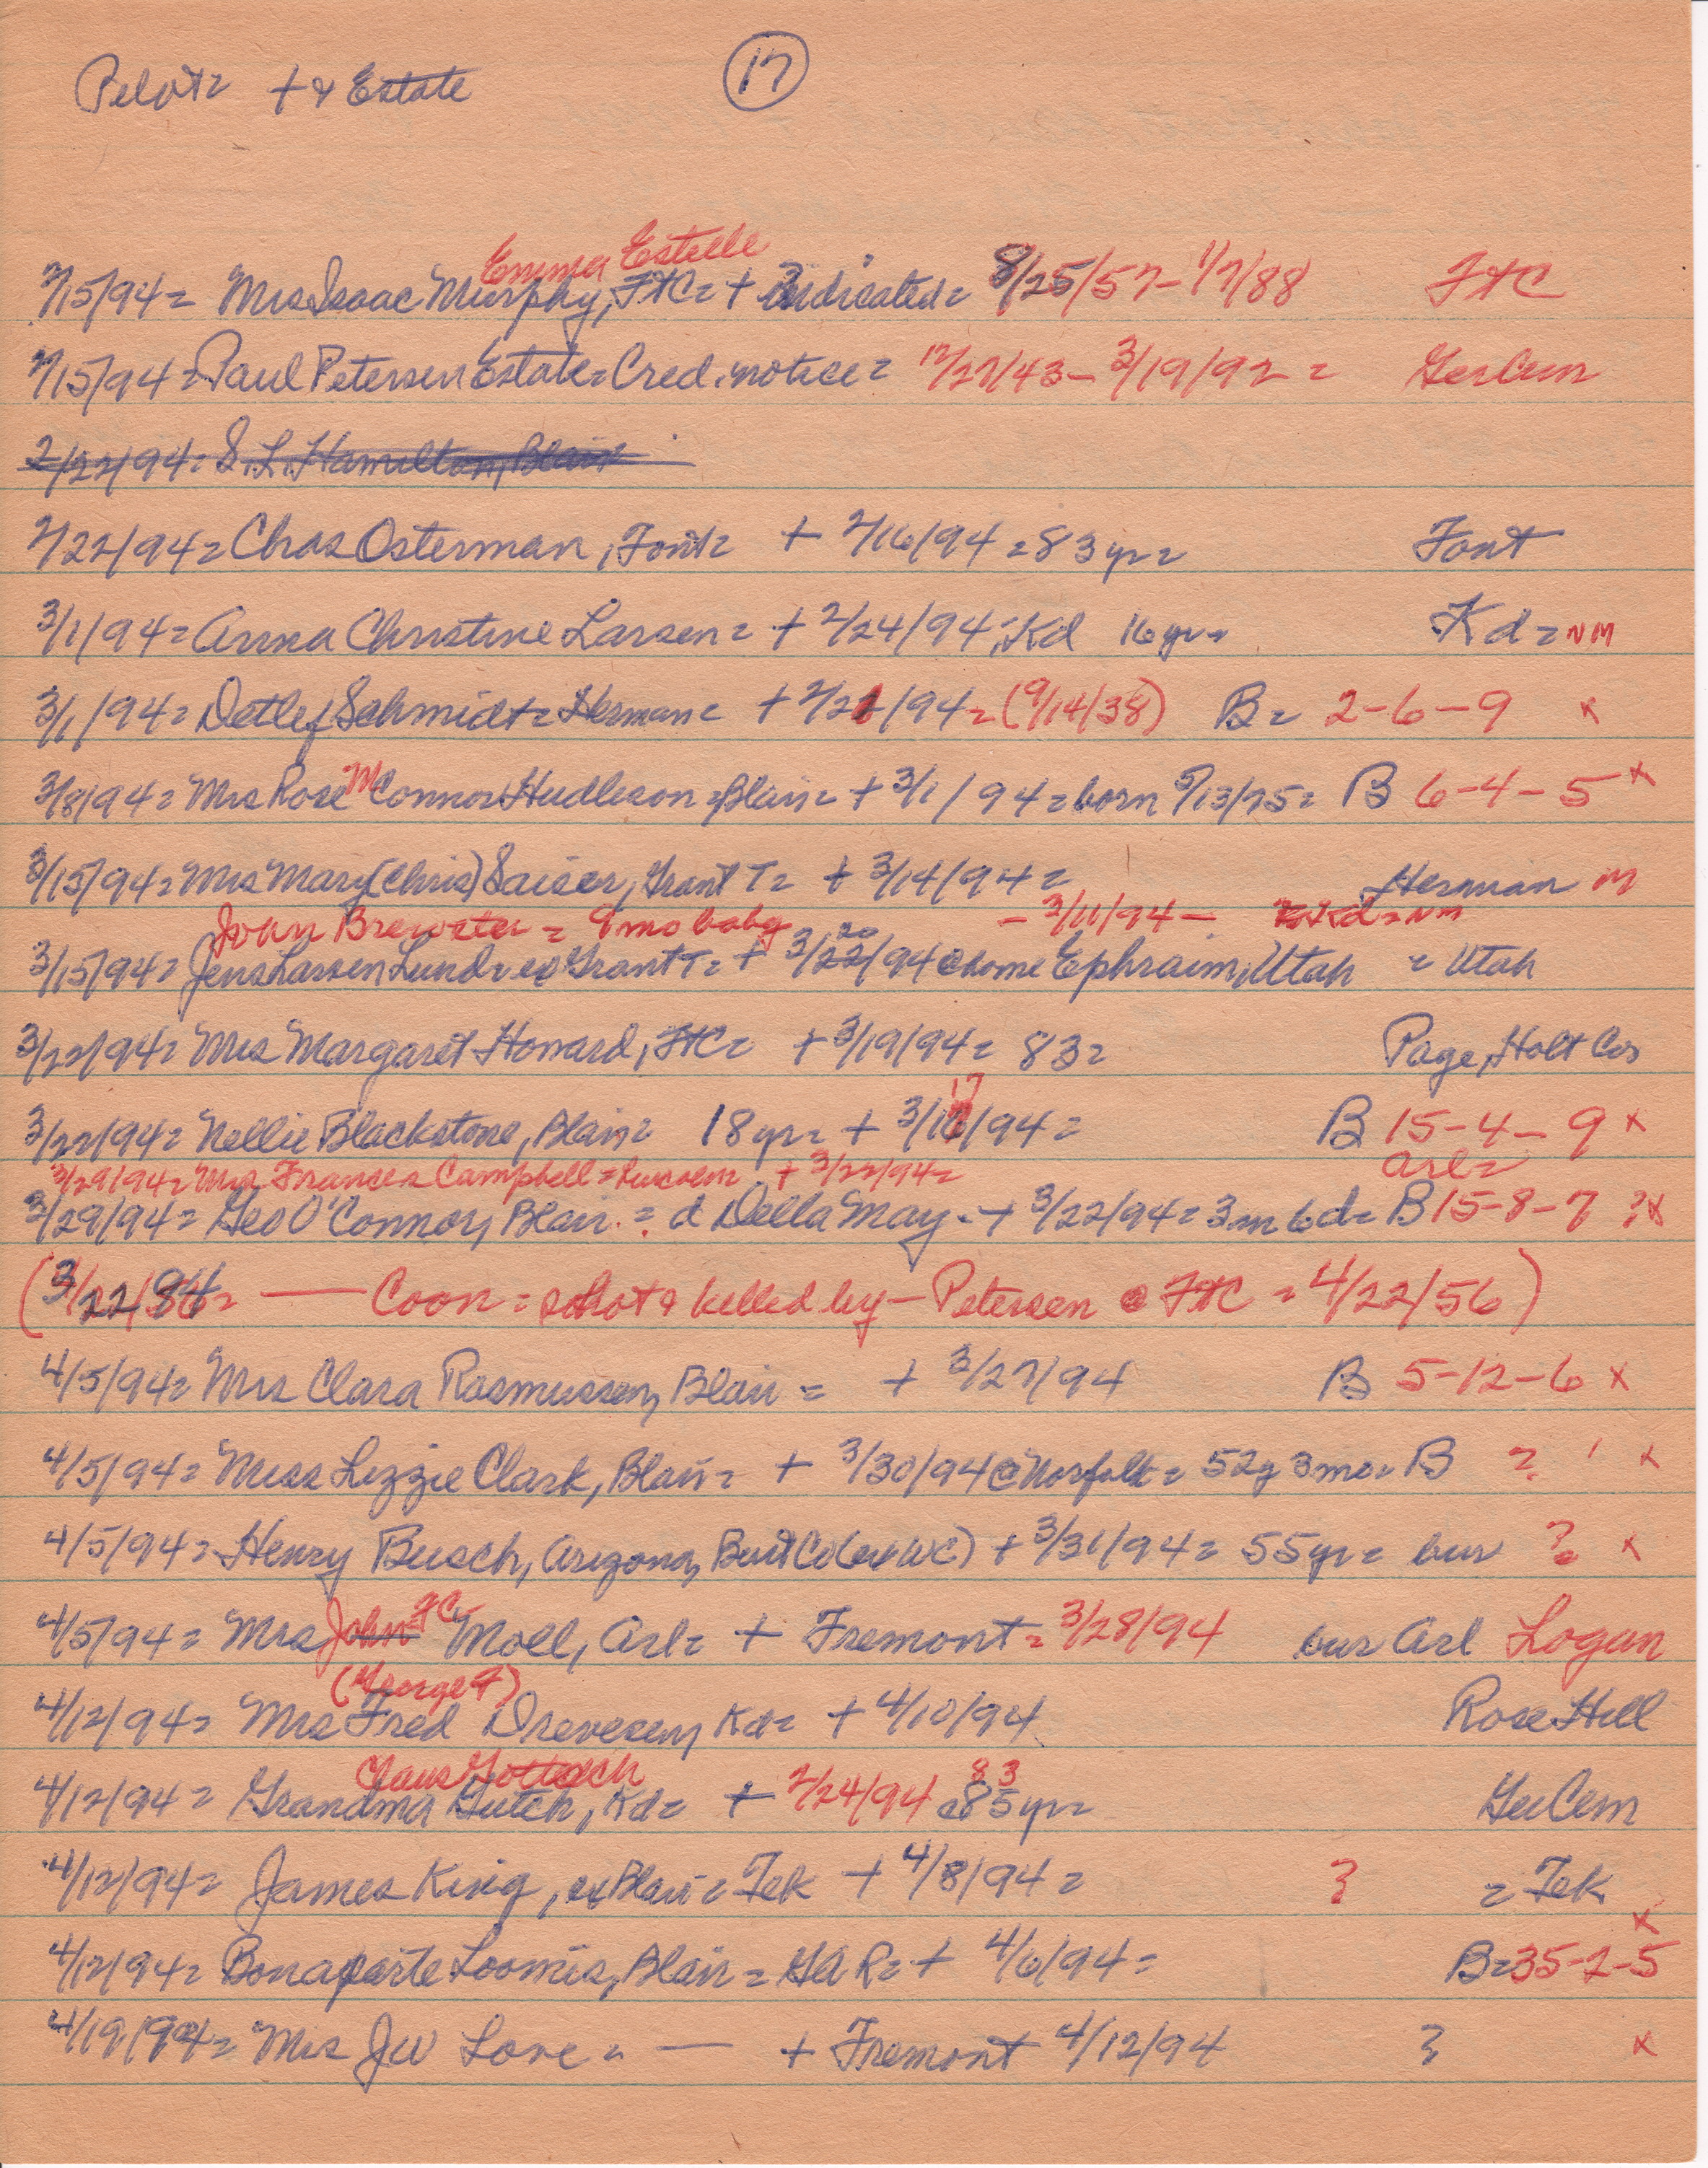 Pilot= + & Estate (17)
Emma Estelle
2/15/94= Mrs Isaac Murphy, FtC= + Indicated= 8/25/57-1/7/88 FtC
2/15/94= Paul Petersen Estate= Cred. notice= 12/27/43-3/19/92= GerCem
2/22/94= S.L. Hamilton, Blair=
2/22/94= Chas Osterman, Font= + 2/16/94=83yr= Font
3/1/94= Anna Christine Larsen= + 2/24/94, Kd 16yr= Kd= NM
3/1/94= Detlef Schmidt= Herman= + 2/21/94=(9/14/38) B= 2-6-9 x
3/8/94= Mrs Rose McConnor Hudleson= Blair= + 3/1/94= born 5/13/75= B 6-4-5 x
3/15/94= Mrs Mary (Chris) Saiser, Grant T= + 3/14/94= Herman M
John Brewster = 9mo baby - 3/11/94 - Kd= NM
3/15/94= Jens Larsen Lund= ex Grant T= + 3/20/94 @ home Ephraim, Utah = Utah
3/22/94= Mrs Margaret Howard, FtC= + 3/19/94= 83= Page, Holt Co
3/22/94= Nellie Blackstone, Blair= 18yr= + 3/17/94= B 15-4-9 x
3/29/94= Mrs Frances Campbell= + 3/22/94= Arl=
3/29/94= Geo O'Connor, Blair.= d Della May - + 3/22/94= 3m 6d= B 15-8-7 ?x
(3/22/84= — Coon= shot & killed by - Petersen @ FtC = 4/22/56)
4/5/94= Mrs Clara Rasmussen, Blair = + 3/27/94 B 5-12-6 x
4/5/94= Miss Lizzie Clark, Blair= + 3/30/94 @ Norfolk= 52y 3mo= B ? x
4/5/94= Henry Busch, Arizona, Burt Co (ex WC) + 3/31/94= 55yr= bur ? x
4/5/94= Mrs John FC Moll, Arl= + Fremont= 3/28/94 bur Arl Logan
(George F)
4/12/94= Mrs Fred Drevesen, Kd= + 4/10/94 Rose Hill
Claus Gottsch
4/12/94= Grandma Gutch, Kd= + 2/24/94 @ 85yr= 83 GerCem
4/12/94= James King, ex Blair= Tek + 4/8/94= ? = Tek
4/12/94= Bonaparte Loomis, Blair= GAR= + 4/6/94= B=35-2-5 x
4/19/94= Mrs JW Love= — + Fremont 4/12/94 ? x